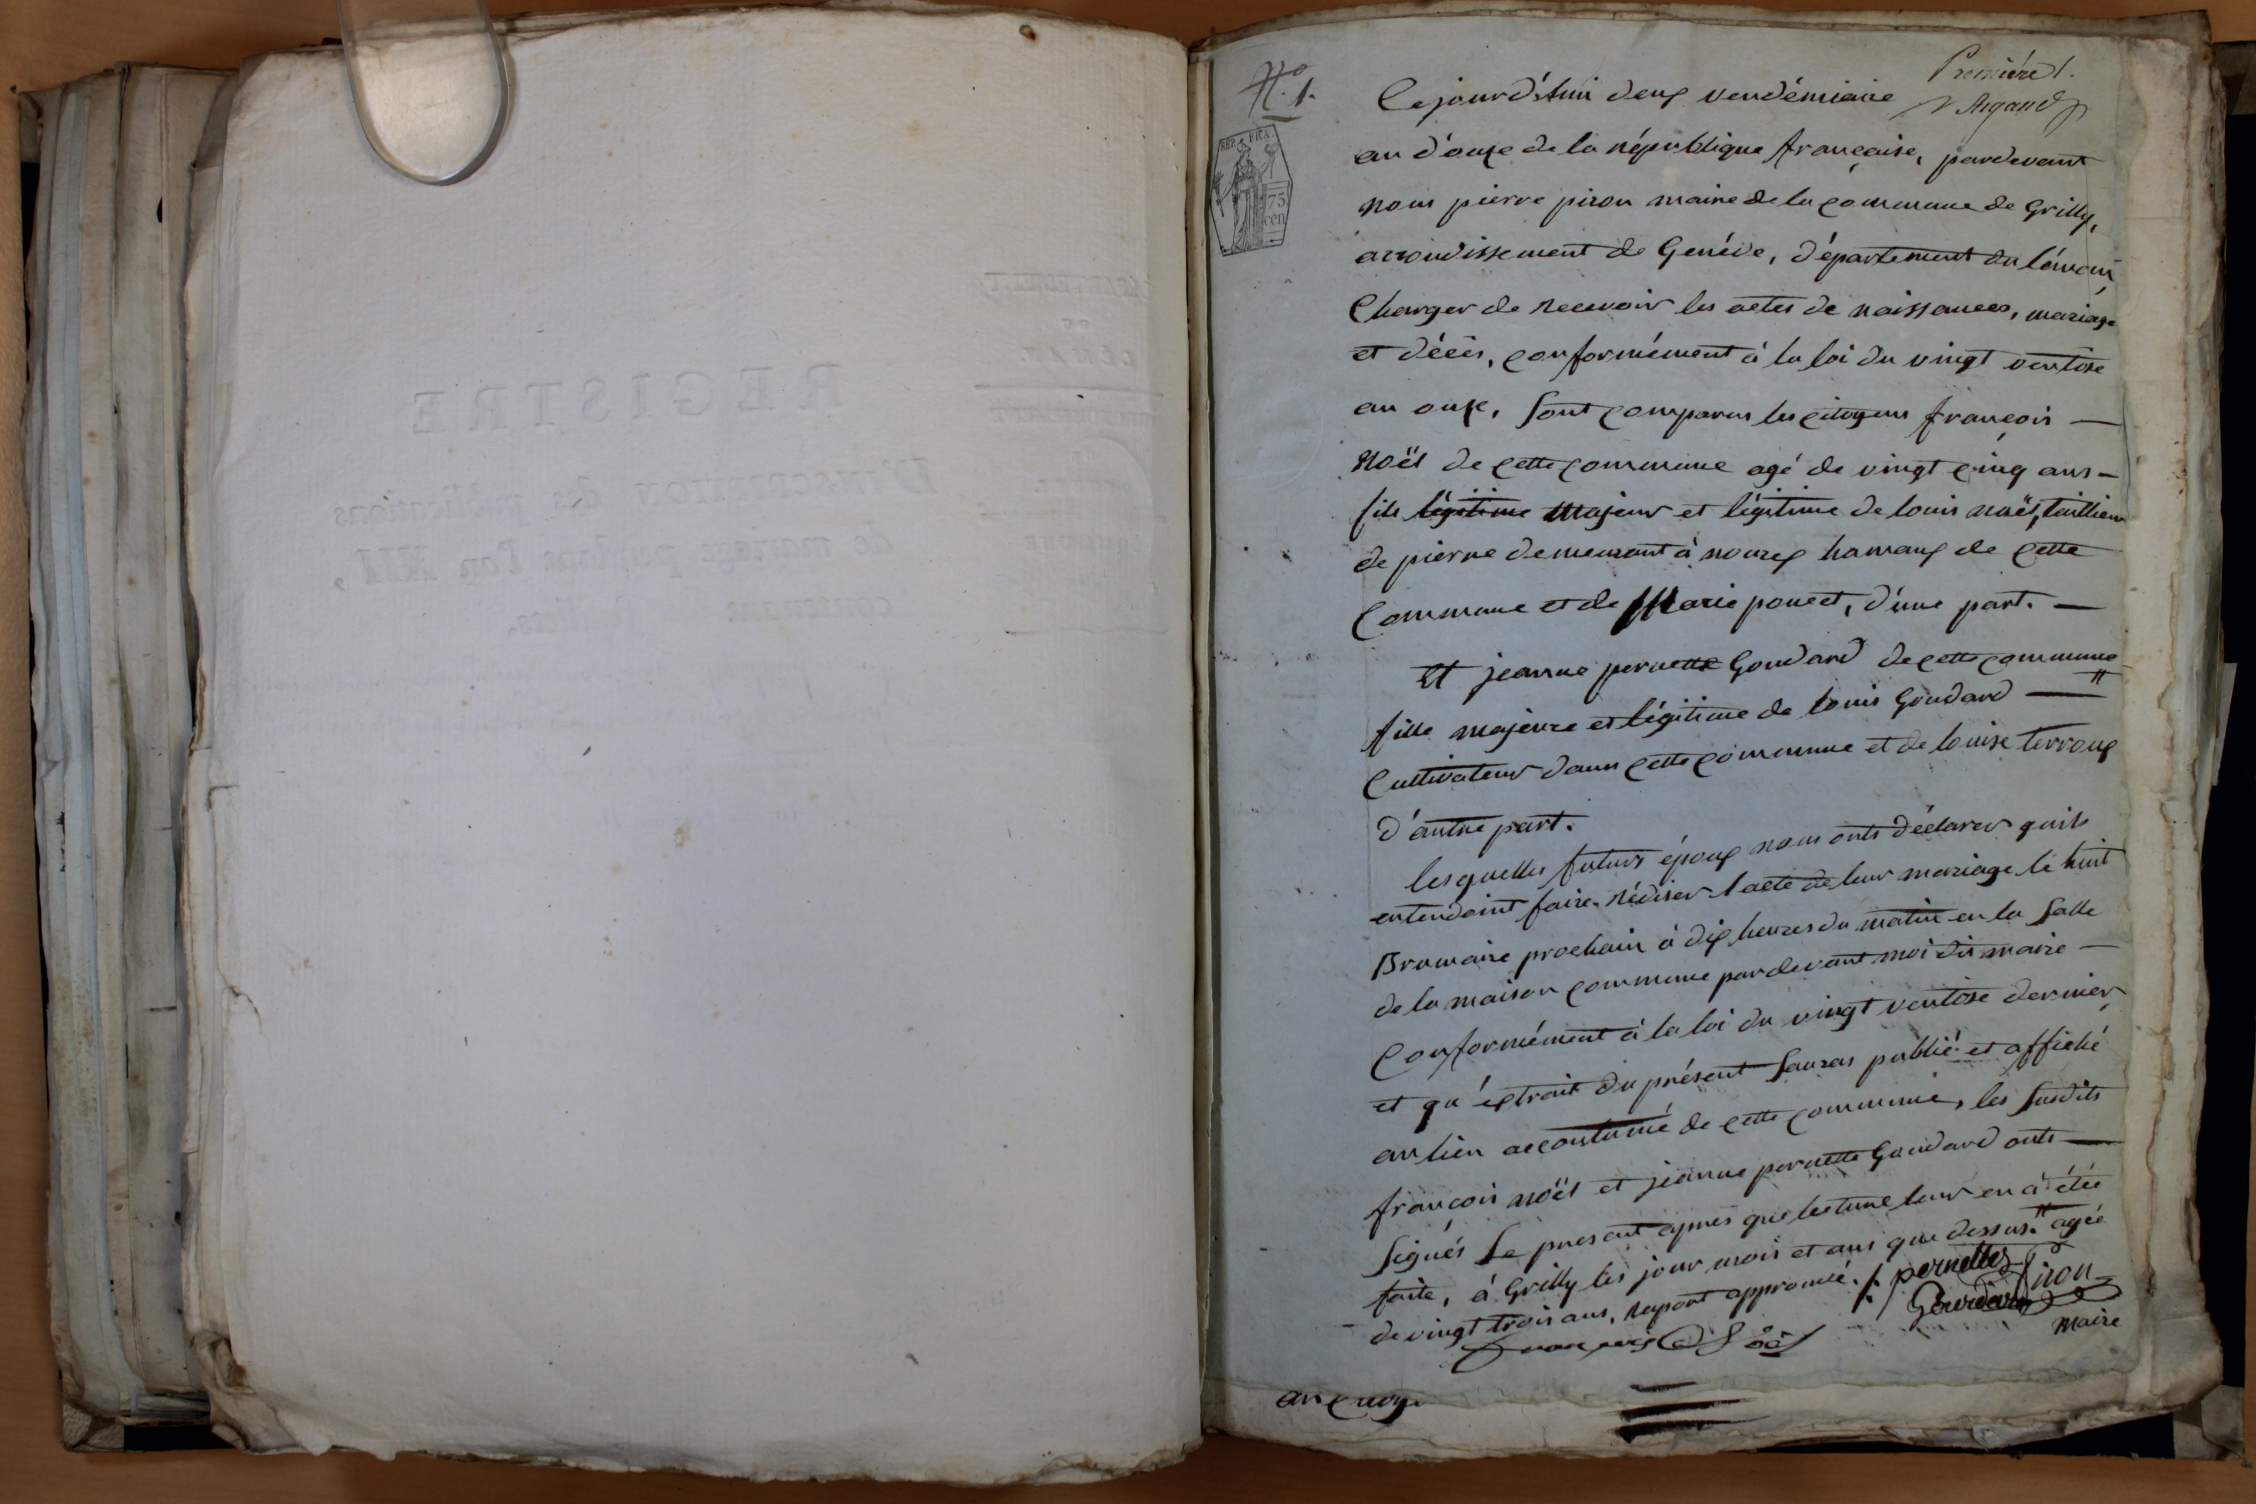 N.º 1.
Première 1.
Argand
REP. FRA.
75
cen
Cejourd'hui deux vendémiaire
an d'ouze de la république française, pardevant
nous pierre piron maire de la commune de Grilly,
arrondissement de Genève, département du léman,
Charger de recevoir les actes de naissances, mariage
et décès, conformément à la loi du vingt ventose
an onze, sont comparus les citoyens françois —
Noël de cette commune agé de vingt cinq ans —
fils légitime Majeur et légitime de louis noël, taillieur
de pierre demeurant à mourex hamaux de cette
Commune et de Marie poncet, d'une part. —
Et jeanne pernette Goudard de cette commune "
fille majeure et légitime de louis Goudard —
Cultivateur dans cette commune et de louise terroux
d'autre part.
lesquelles futurs époux nous onts déclarer quils
entendoint faire rédiser l'acte de leur mariage le huit
Brumaire prochain à dix heures du matin en la salle
de la maison commune pardevant moi dit maire —
Conformément à la loi du vingt ventose dernier,
et qu'éxtrait du présent sauras publié et affiché
au lieu accoutumé de cette commune, les susdits
françois noël et jeanne pernette Goudard onts —
signés le present apres que lecture leur en à étée
faite, à Grilly les jour mois et ans que dessus. " agée
de vingt trois ans, raport approuvé. /. pernettes Piron
Gourdard
maire
françois Noël